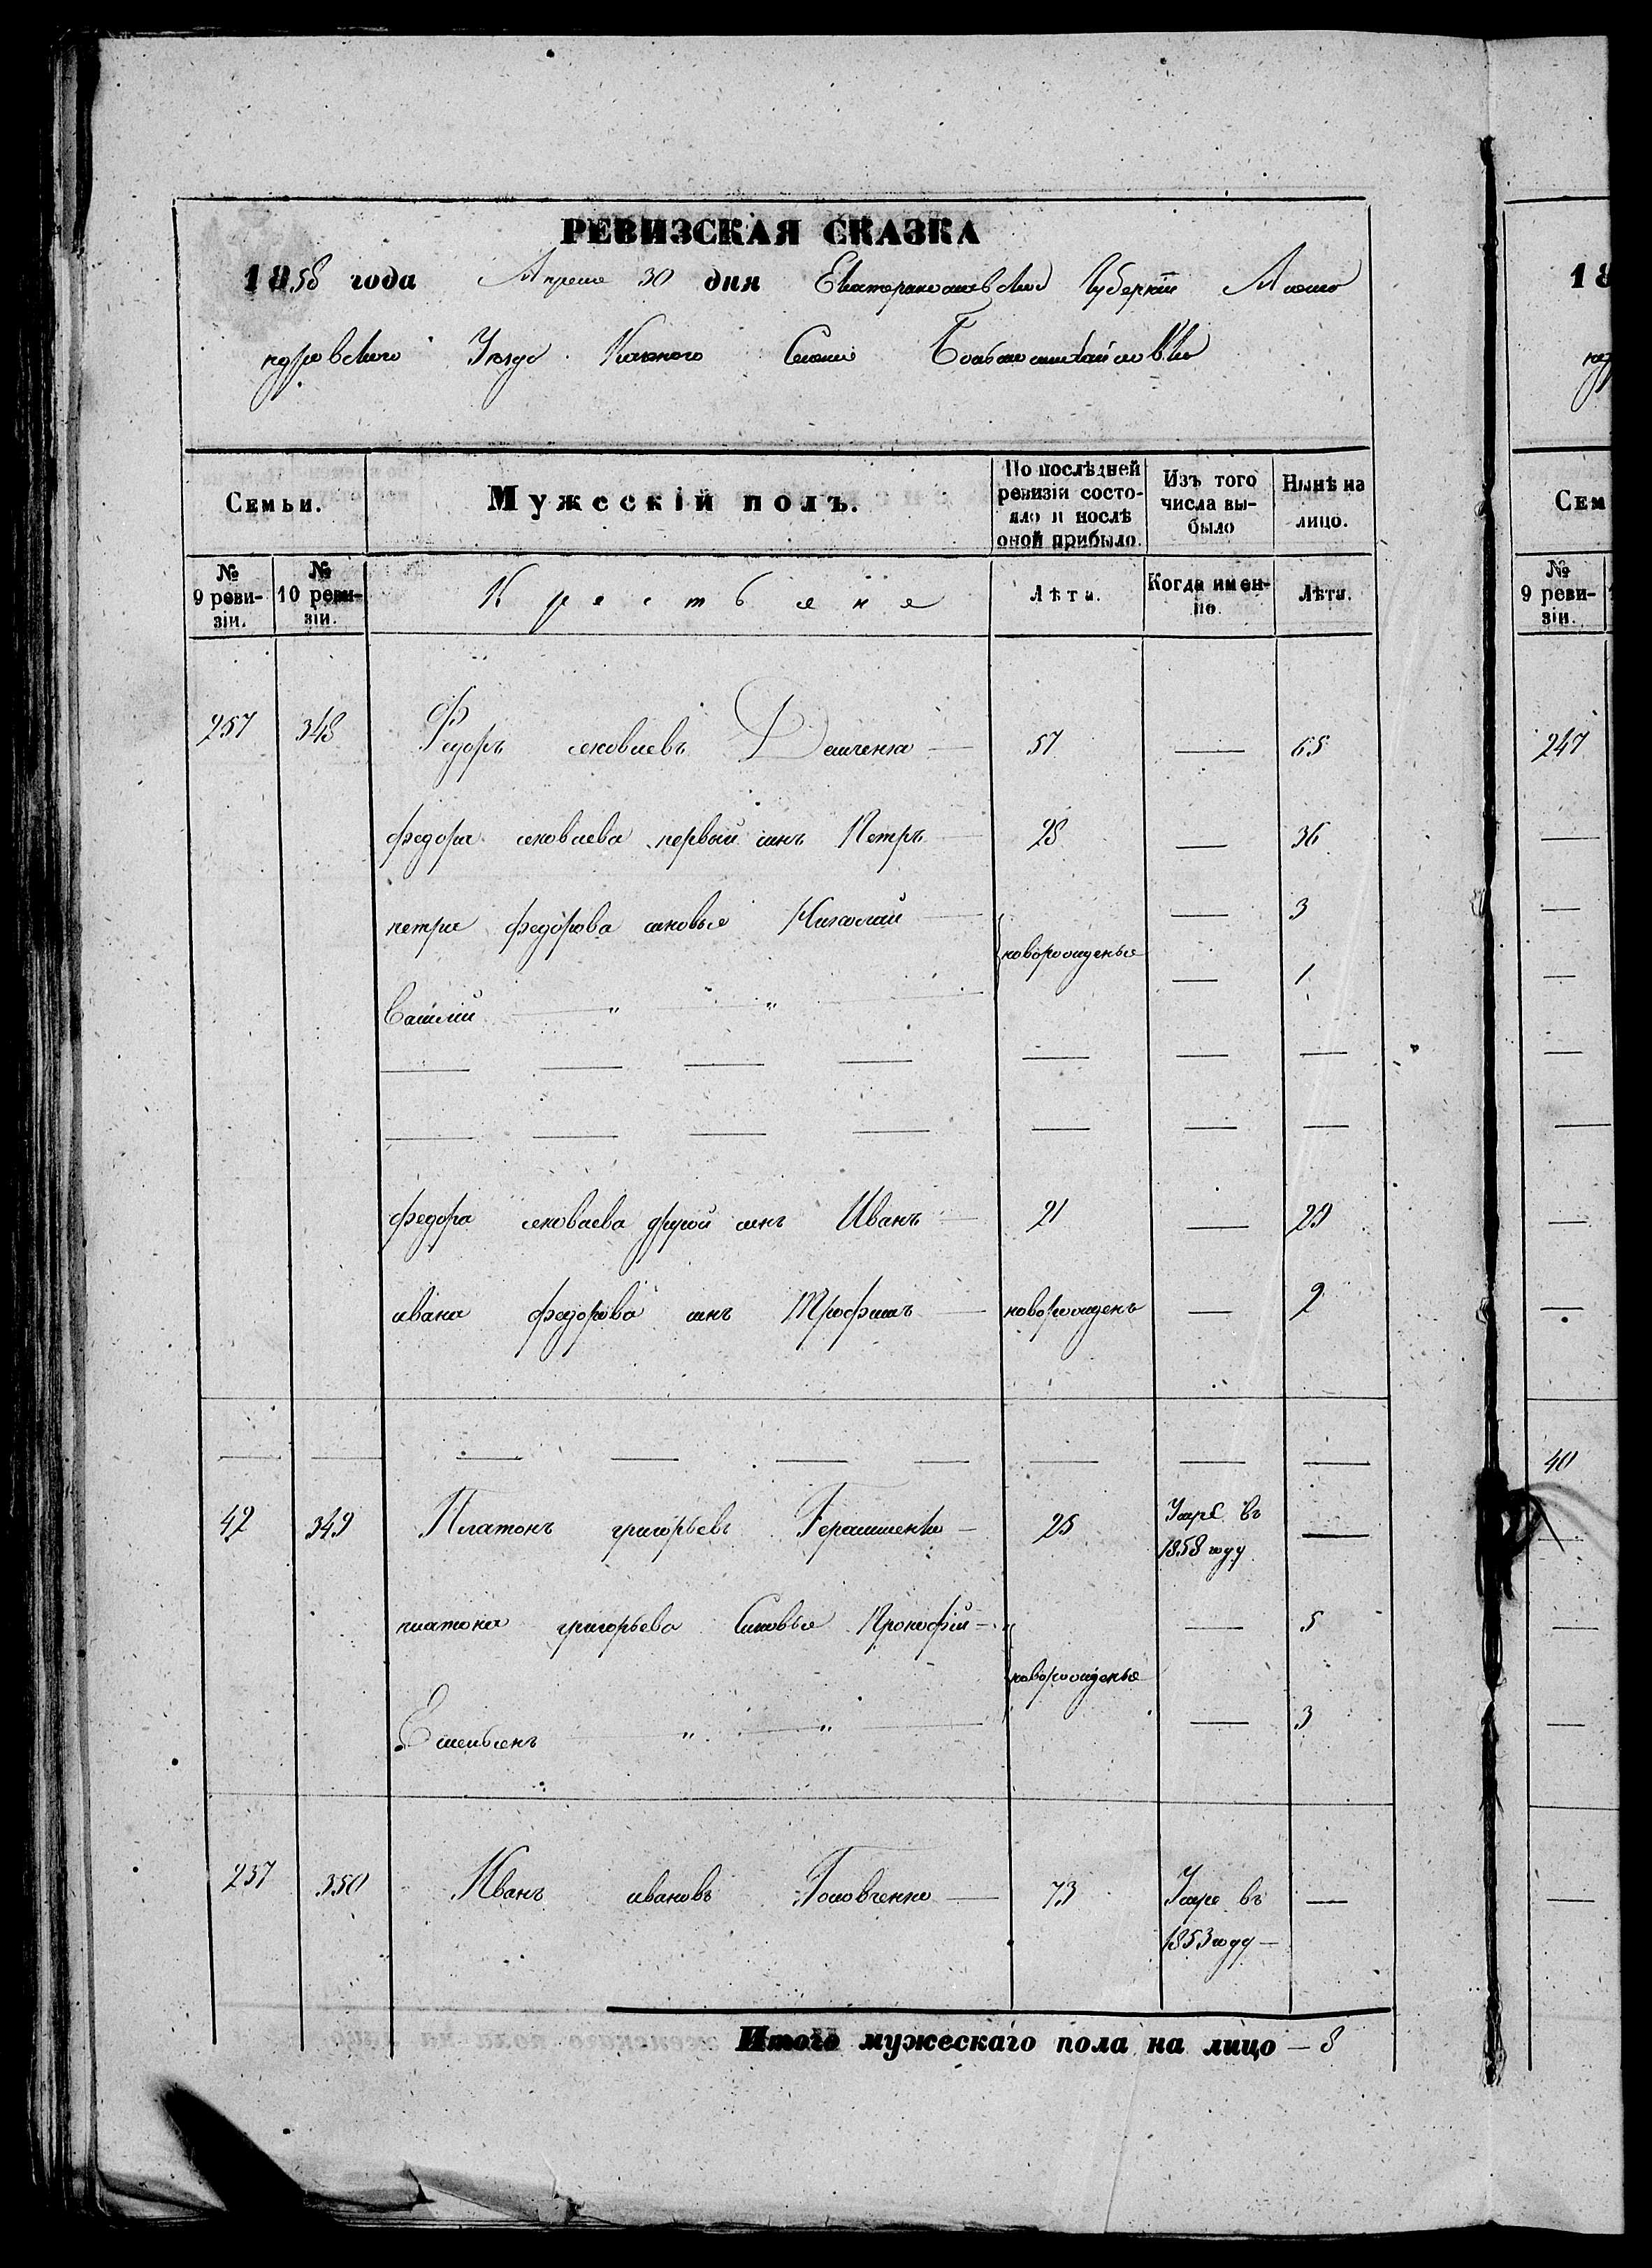 РЕВИЗСКАЯ СКАЗКА
1858 года Апреля 30 дня Екатеринославской Губерніи Алекса
ндровскаго Уезда Казеннаго Селенія Большемихайловки
Семьи.
Мужескій полъ.
По послѣдней ревизіи состо-
яло и послѣ
оной прибыло.
Изъ того
числа вы-
было
Нынѣ на
лицо.
№
9 реви-
зіи.
№
10 реви-
зіи.
Крестьяне
Лѣта.
Когда имен-
но.
Лѣта.
257 348 Федоръ яковлевъ — 57 — 65
федора яковлева первый сынъ Петръ 28 — 36
петра федорова сыновья Николай — 3
новорожденые
Василій — " — " — — 1
федора яковлева другой сынъ Иванъ — 21 — 29
ивана федорова сынъ Трофимъ — новорожденъ — 2
42 349 Платонъ григорьевъ Герасименко — 25 Умре въ —
1858 году
платона григорьева Сыновья Прокофій — " — 5
новорожденые
Емельянъ — " — " — — 3
237 350 Иванъ ивановъ Головченко — 73 Умре въ —
1853 году —
Итого мужескаго пола на лицо — 8
18
Сем
№
9 реви-
зіи.
247
40